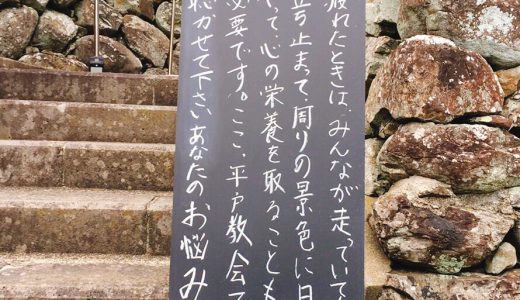 疲れたときは、みんなが走っていて
立ち止まって周りの景色に目
して、心の栄養を取ることも
必要です。ここ、平戸教会で
聴かせて下さい、あなたのお悩み